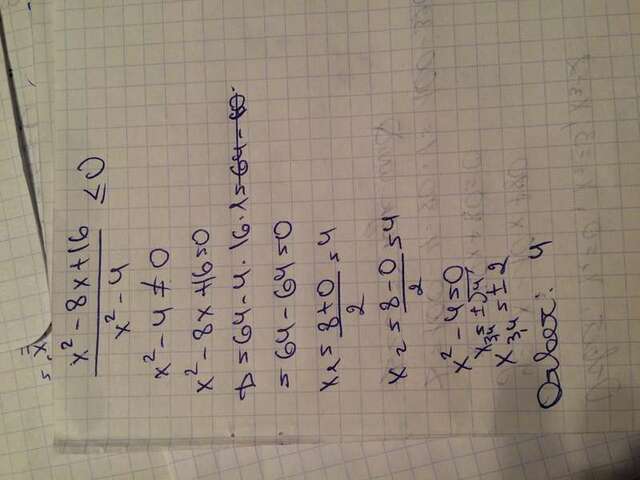 x² - 8x + 16
x² - 4
≤ 0
x² - 4 ≠ 0
x² - 8x + 16 = 0
D = 64 - 4 · 16 · 1 = 64 - 80
= 64 - 64 = 0
x = 8 + 0 / 2 = 4
x = 8 - 0 / 2 = 4
x² - 4 = 0
x3,4 = ± √4
x3,4 = ± 2
Ответ: 4